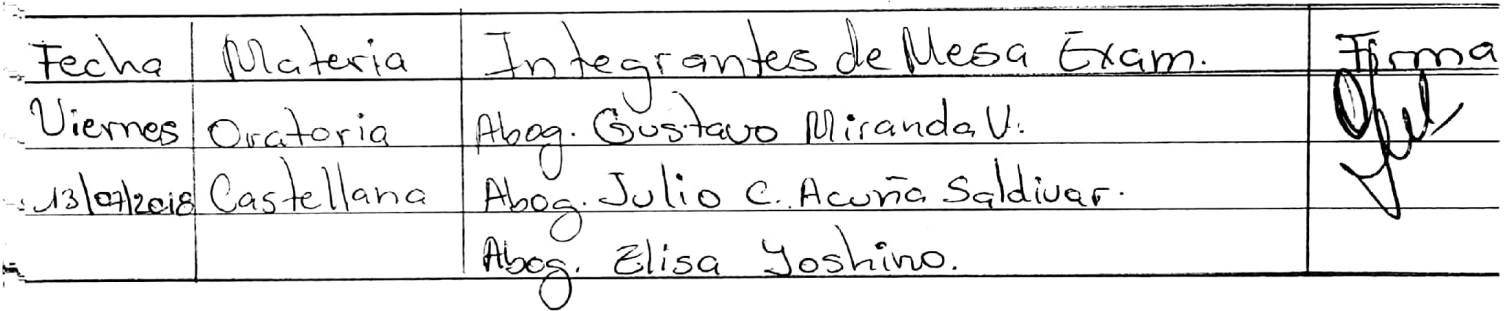 Fecha Materia Integrantes de Mesa Exam. Firma
Viernes Oratoria Abog. Gustavo Miranda V.
13/07/2018 Castellana Abog. Julio C. Acuña Saldivar.
Abog. Elisa Yoshino.